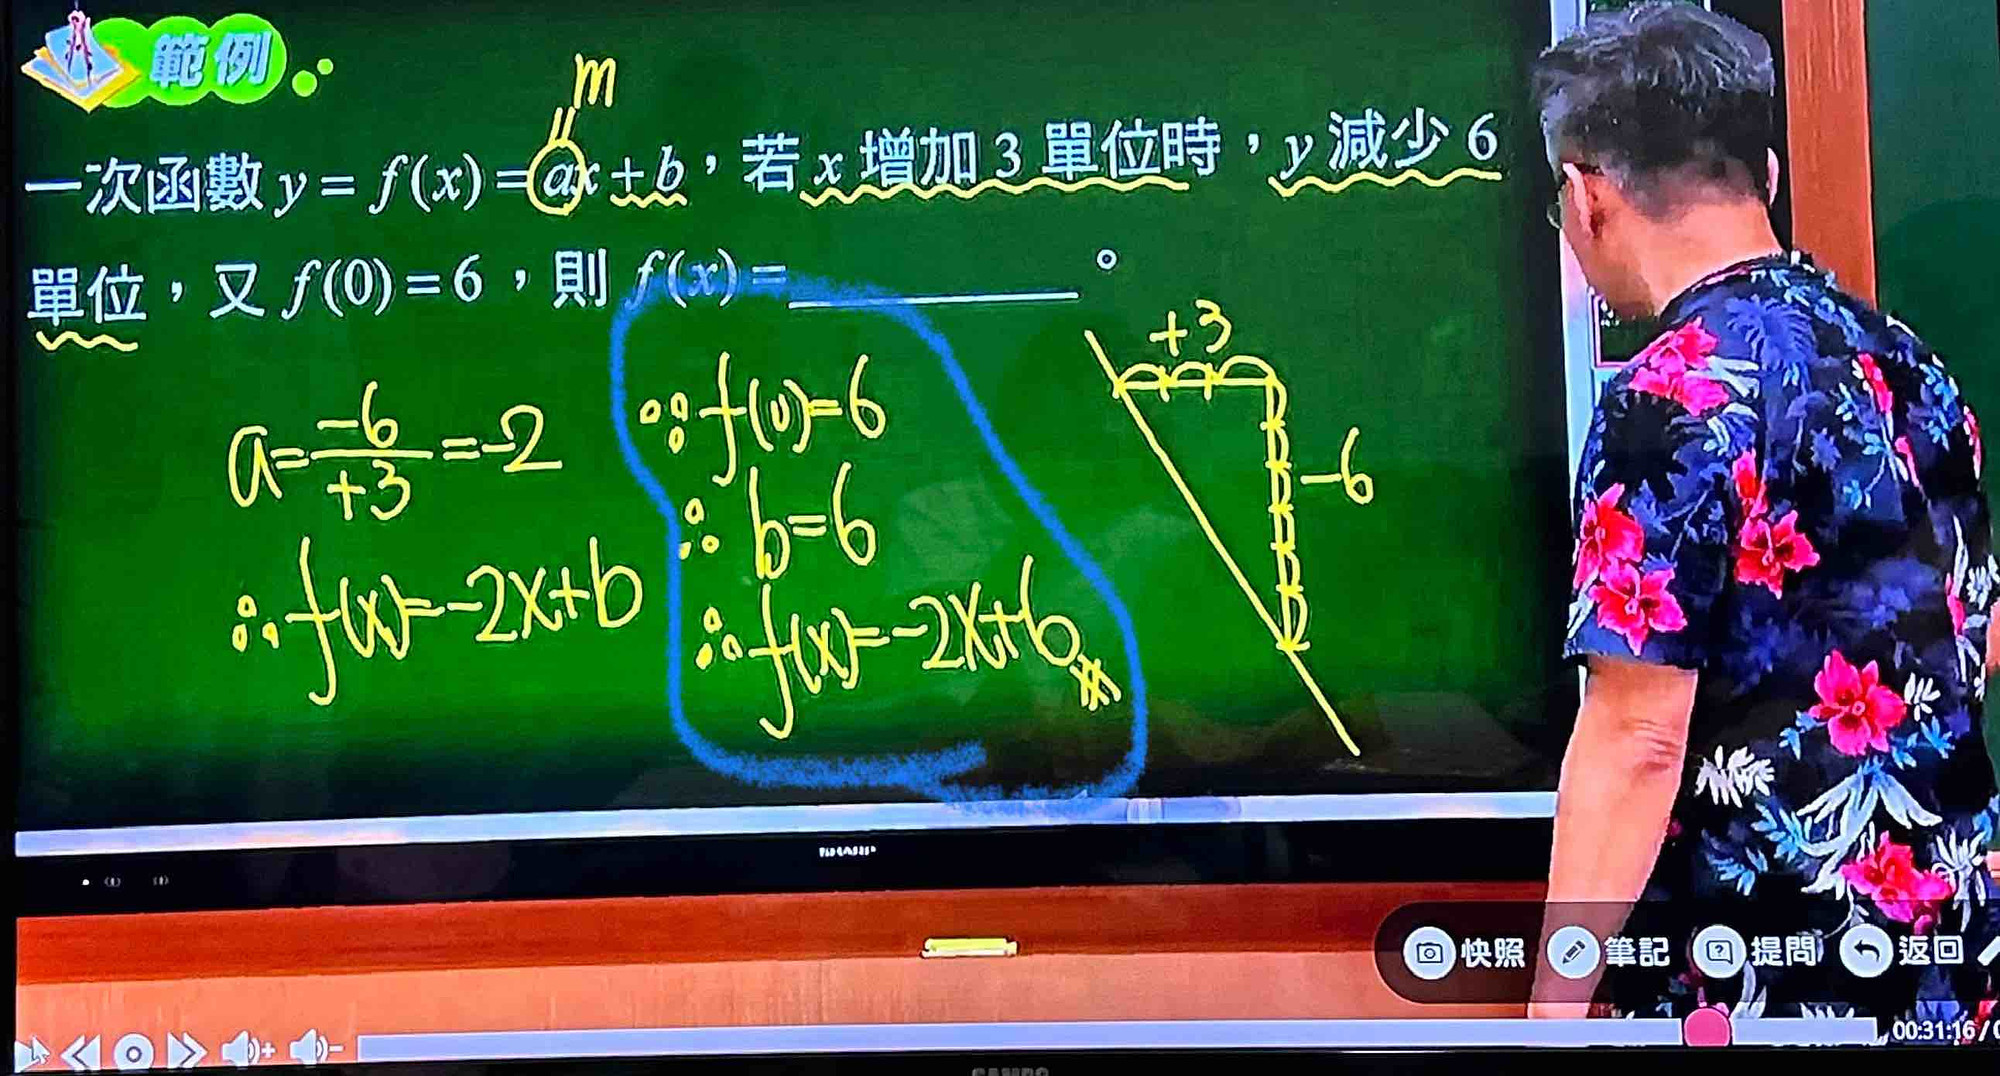 範例
m
一次函數 y = f(x) = ax + b,若 x 增加 3 單位時,y 減少 6
單位,又 f(0) = 6,則 f(x) = ________。
a = -6/+3 = -2
∴ f(x) = -2x+b
∵ f(0) = 6
∴ b = 6
∴ f(x) = -2x+6
+3
-6
SHARP
快照 筆記 提問 返回
00:31:16 /